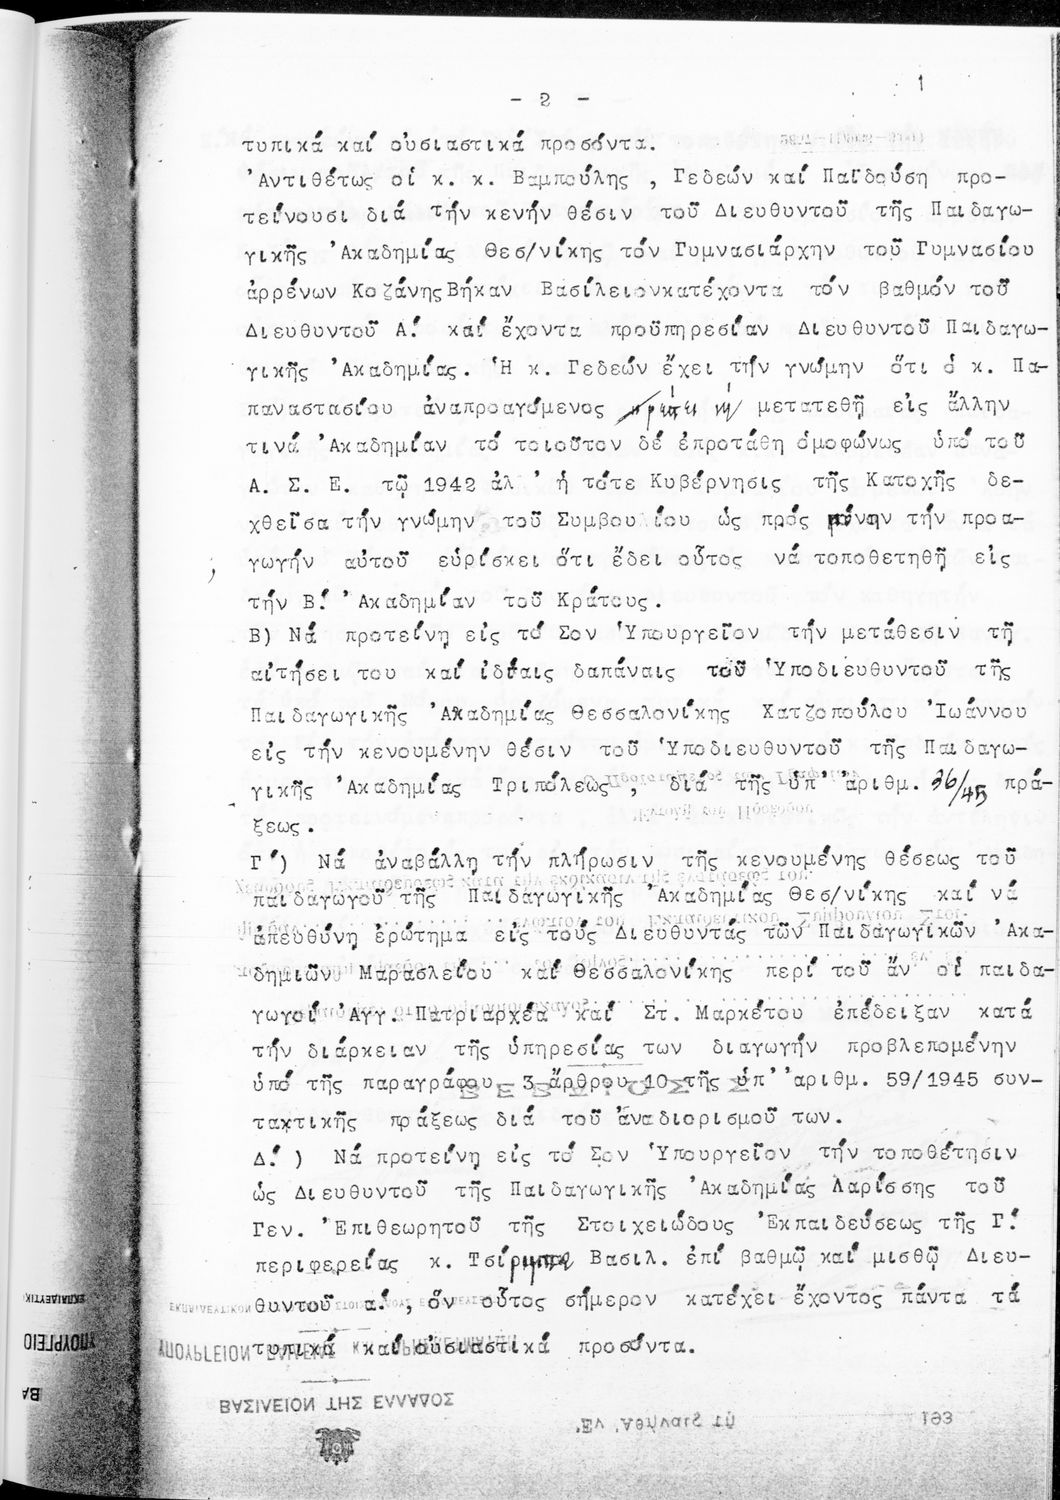 1
- 2 -
τυπικά καί οὐσιαστικά προσόντα.
'Αντιθέτως οἱ κ. κ. Βαμπούλης , Γεδεών καί Παϊδούση προ-
τείνουσι διά τήν κενήν θέσιν τοῦ Διευθυντοῦ τῆς Παιδαγω-
γικῆς 'Ακαδημίας Θεσ/νίκης τόν Γυμνασιάρχην τοῦ Γυμνασίου
ἀρρένων Κοζάνης Βήκαν Βασίλειονκατέχοντα τόν βαθμόν τοῦ
Διευθυντοῦ Α! καί ἔχοντα προϋπηρεσίαν Διευθυντοῦ Παιδαγω-
γικῆς 'Ακαδημίας. Ἡ κ. Γεδεών ἔχει τήν γνώμην ὅτι ὁ κ. Πα-
παναστασίου ἀναπροαγόμενος μετατεθῇ εἰς ἄλλην
τινά 'Ακαδημίαν τό τοιοῦτον δέ ἐπροτάθη ὁμοφώνως ὑπό τοῦ
Α. Σ. Ε. τῷ 1942 ἀλ ' ἡ τότε Κυβέρνησις τῆς Κατοχῆς δε-
χθεῖσα τήν γνώμην τοῦ Συμβουλίου ὡς πρός μόνην τήν προα-
γωγήν αὐτοῦ εὑρίσκει ὅτι ἔδει οὗτος νά τοποθετηθῇ εἰς
τήν Β! 'Ακαδημίαν τοῦ Κράτους.
Β) Νά προτείνῃ εἰς τό Σον Ὑπουργεῖον τήν μετάθεσιν τῇ
αἰτήσει του καί ἰδίαις δαπάναις τοῦ Ὑποδιευθυντοῦ τῆς
Παιδαγωγικῆς 'Ακαδημίας Θεσσαλονίκης Χατζοπούλου 'Ιωάννου
εἰς τήν κενουμένην θέσιν τοῦ Ὑποδιευθυντοῦ τῆς Παιδαγω-
γικῆς 'Ακαδημίας Τριπόλεως , διά τῆς ὑπ' ἀριθμ. 36/45 πρά-
ξεως.
Γ') Νά ἀναβάλλῃ τήν πλήρωσιν τῆς κενουμένης θέσεως τοῦ
παιδαγωγοῦ τῆς Παιδαγωγικῆς 'Ακαδημίας Θεσ/νίκης καί νά
ἀπευθύνῃ ἐρώτημα εἰς τούς Διευθυντάς τῶν Παιδαγωγικῶν 'Ακα-
δημιῶν Μαρασλείου καί Θεσσαλονίκης περί τοῦ ἄν οἱ παιδα-
γωγοί 'Αγγ. Πατριαρχέα καί Στ. Μαρκέτου ἐπέδειξαν κατά
τήν διάρκειαν τῆς ὑπηρεσίας των διαγωγήν προβλεπομένην
ὑπό τῆς παραγράφου 3 ἄρθρου 10 τῆς ὑπ' 'αριθμ. 59/1945 συν-
τακτικῆς πράξεως διά τοῦ ἀναδιορισμοῦ των.
Δ! ) Νά προτείνῃ εἰς τό Σον Ὑπουργεῖον τήν τοποθέτησιν
ὡς Διευθυντοῦ τῆς Παιδαγωγικῆς 'Ακαδημίας Λαρίσσης τοῦ
Γεν. 'Επιθεωρητοῦ τῆς Στοιχειώδους 'Εκπαιδεύσεως τῆς Γ!
περιφερείας κ. Τσίριμπα Βασιλ. ἐπί βαθμῷ καί μισθῷ Διευ-
θυντοῦ α! , ὅν οὗτος σήμερον κατέχει ἔχοντος πάντα τά
τυπικά καί οὐσιαστικά προσόντα.
ΒΑΣΙΛΕΙΟΝ ΤΗΣ ΕΛΛΑΔΟΣ
'Εν 'Αθήναις τῇ 193